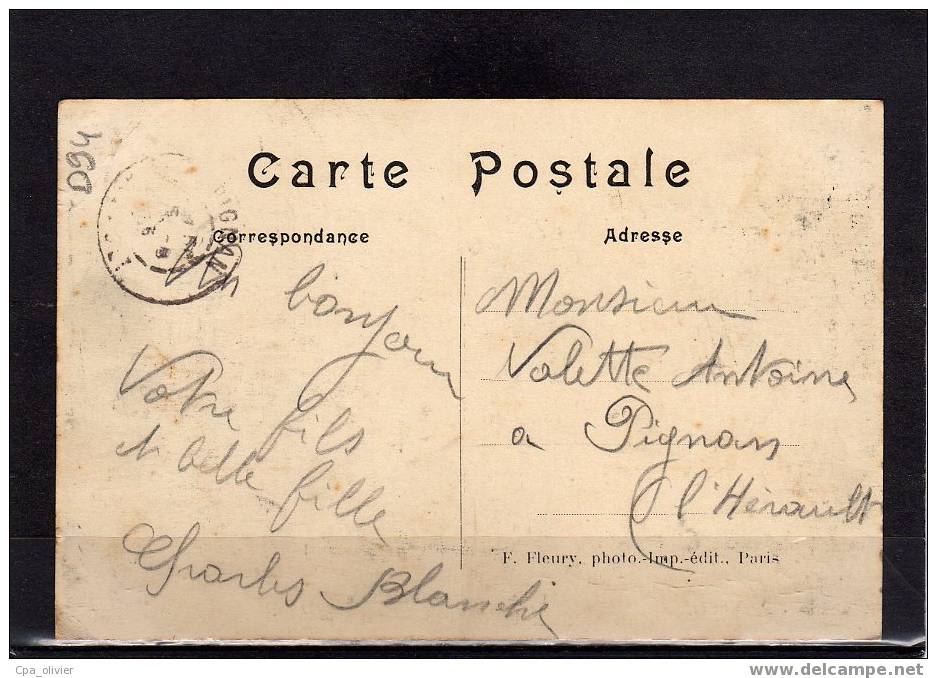 460
Carte Postale
PIGNAN
Correspondance
Adresse
Un bonjour
Votre fils
et belle fille
Charles Blanche
Monsieur
Valette Antoine
a Pignan
l'Hérault
F. Fleury, photo.-Imp.-édit., Paris
Cpa_olivier
www.delcampe.net